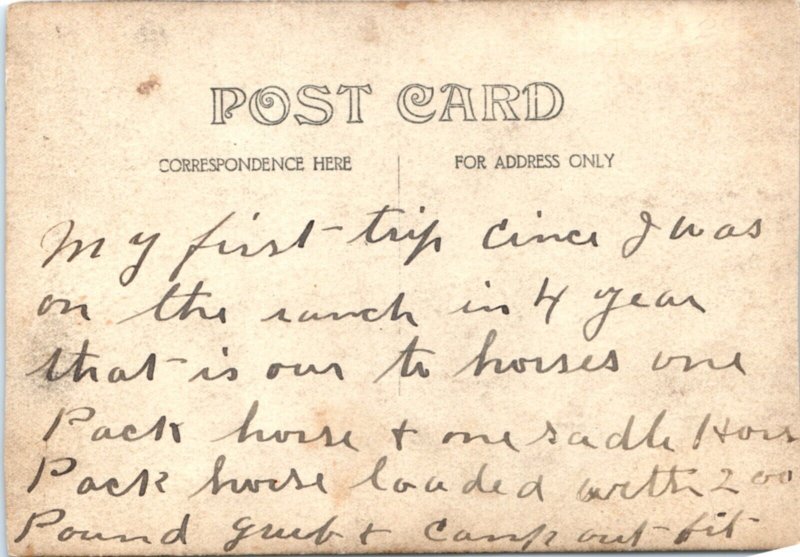 POST CARD
CORRESPONDENCE HERE FOR ADDRESS ONLY
My first trip cince I was
on the ranch in 4 year
that is our to horses one
Pack horse + one sadle Hors
Pack horse loaded with 200
Pound grub + camp out fit